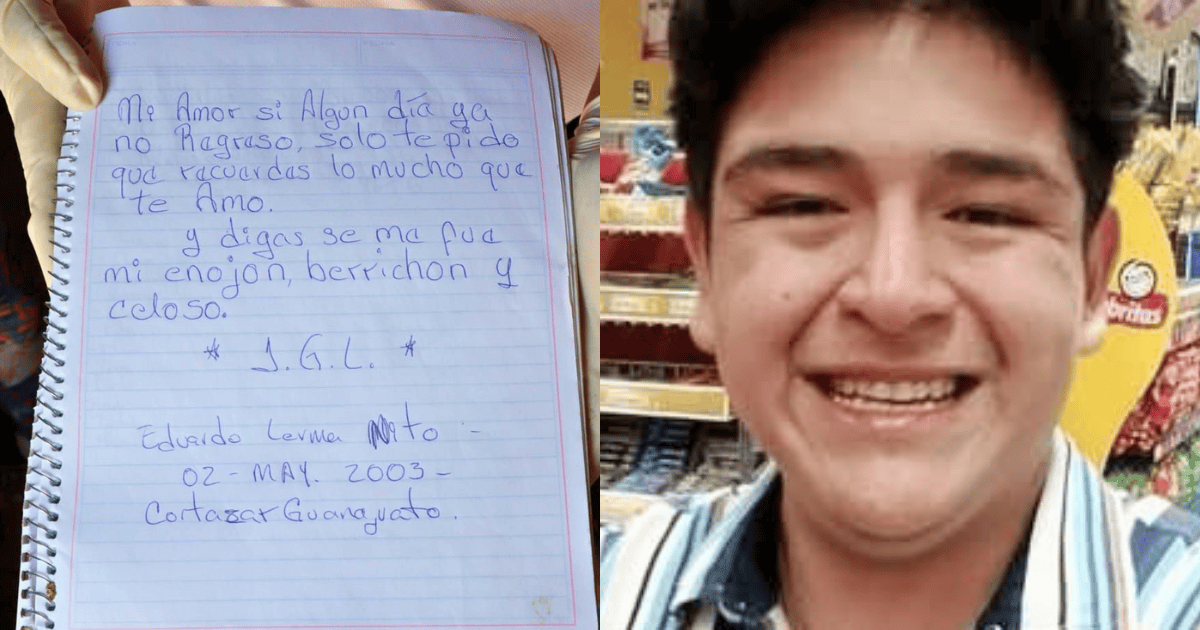 Mi Amor si Algun día ya
no Regreso, solo te pido
que recuerdes lo mucho que
te Amo.
y digas se me fue
mi enojon, berrichon y
celoso.
* J.G.L. *
Eduardo Lerma Nito -
02 - MAY. 2003 -
Cortazar Guanajuato.
britas